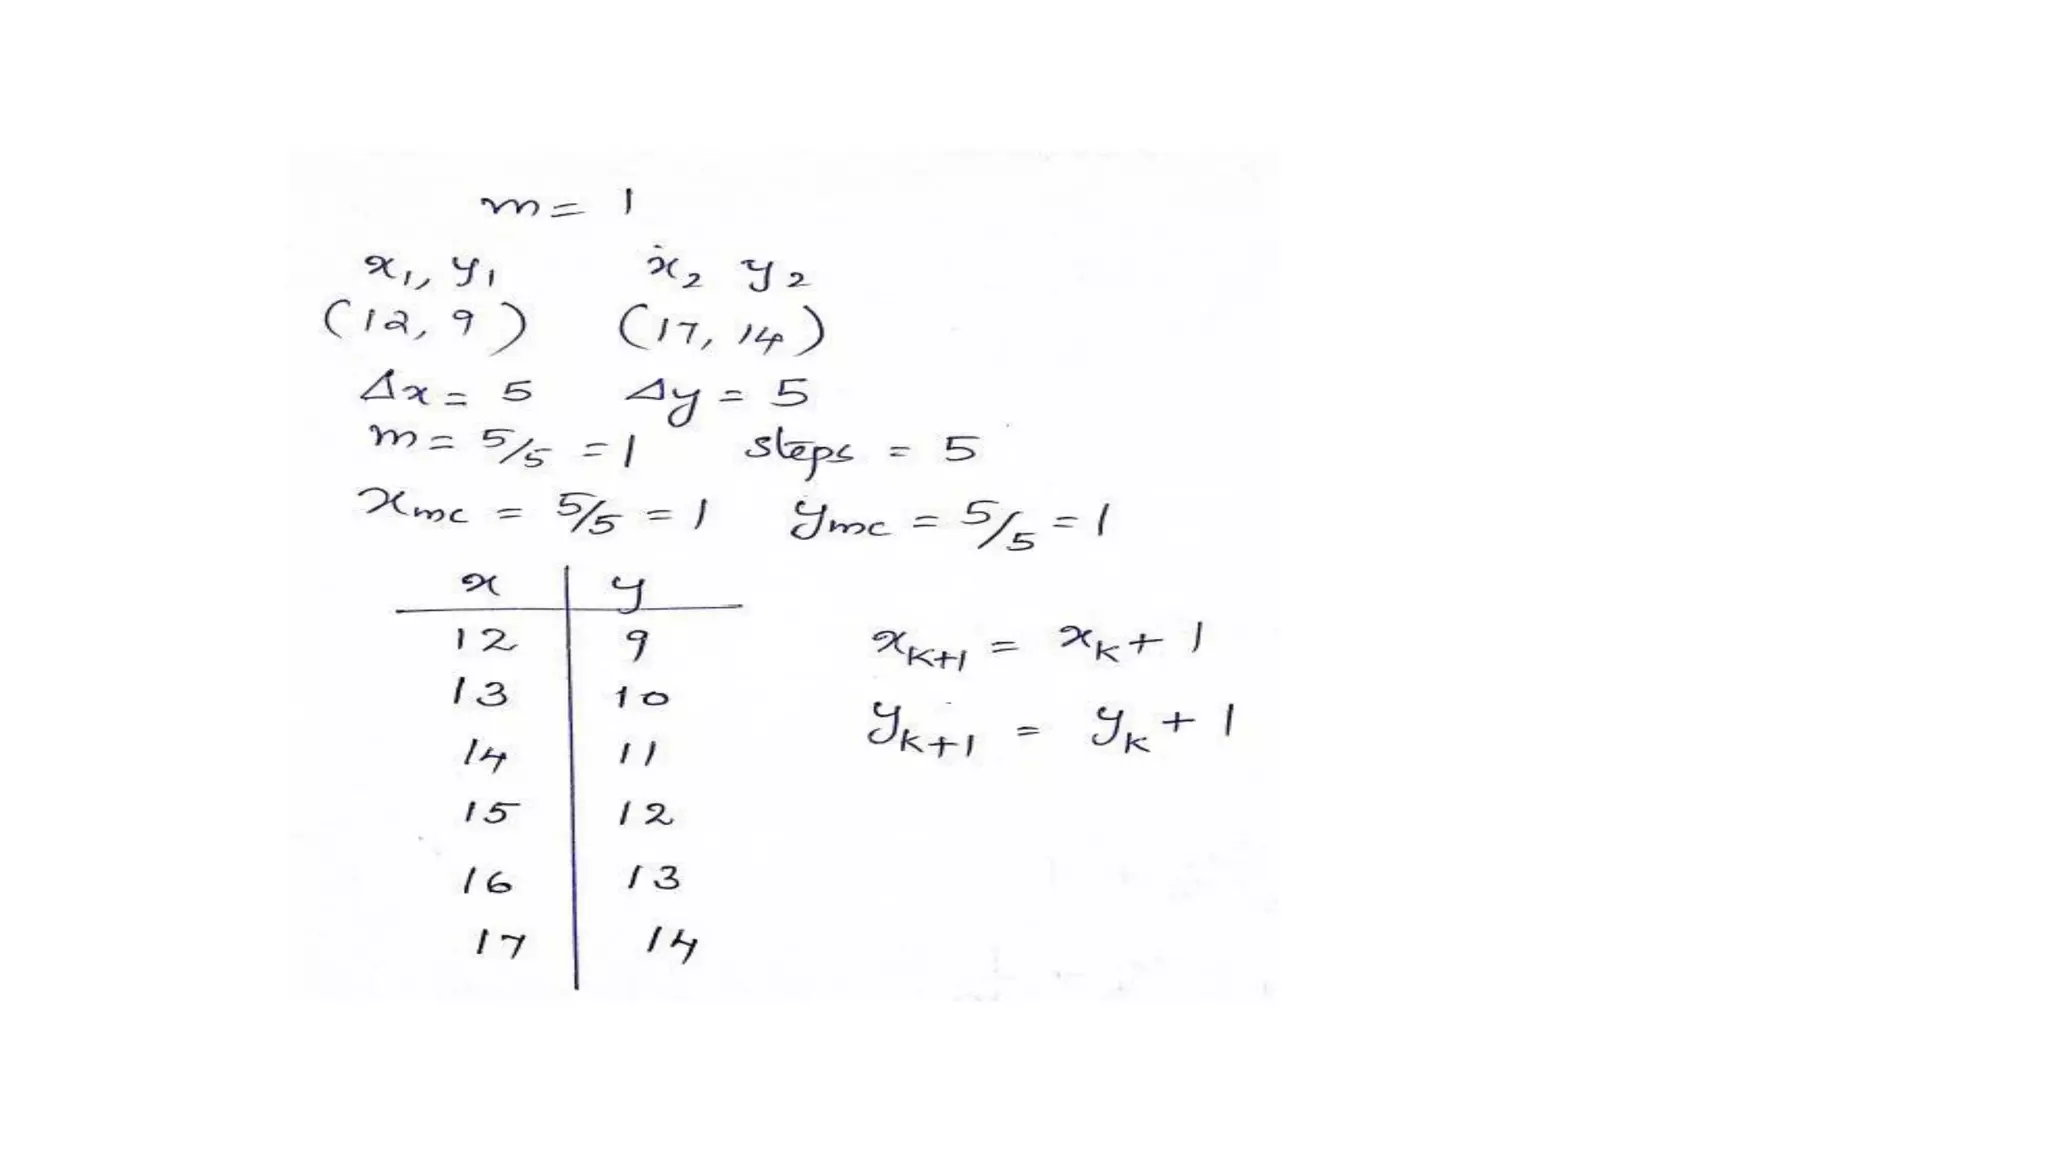 m = 1
x₁, y₁ x₂ y₂
(12, 9) (17, 14)
Δx = 5 Δy = 5
m = 5/5 = 1 steps = 5
xᵢₙc = 5/5 = 1 yᵢₙc = 5/5 = 1
x y
12 9
13 10
14 11
15 12
16 13
17 14
xₖ₊₁ = xₖ + 1
yₖ₊₁ = yₖ + 1